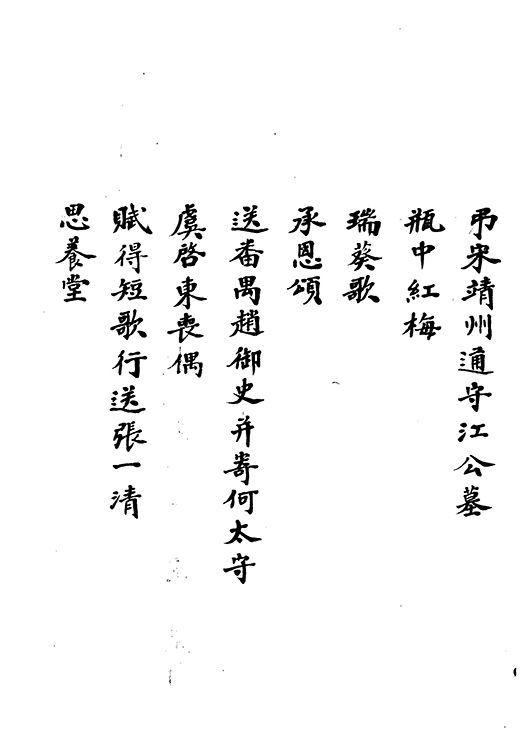 弔宋靖州通守江公墓
瓶中紅梅
瑞葵歌
承恩頌
送番禺趙御史并寄何太守
虞啓東喪偶
賦得短歌行送張一清
思養堂